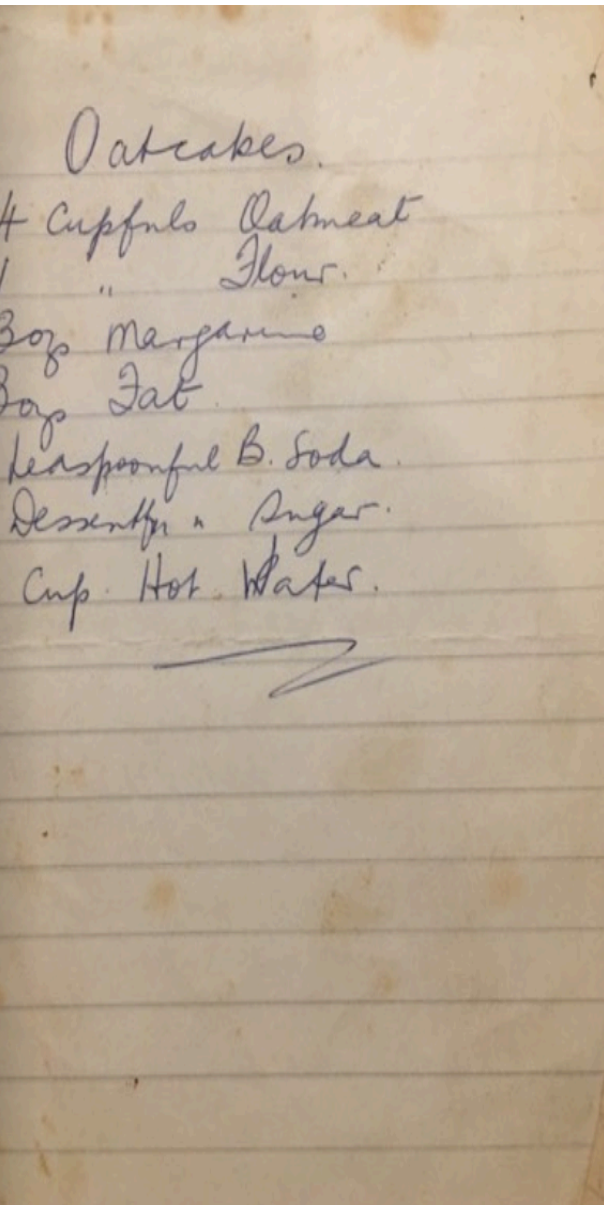 Oatcakes.
4 Cupfuls Oatmeal
1 " Flour.
3ozs Margarine
3ozs Fat
teaspoonful B. Soda.
Dessertfn " Sugar.
Cup Hot Water.